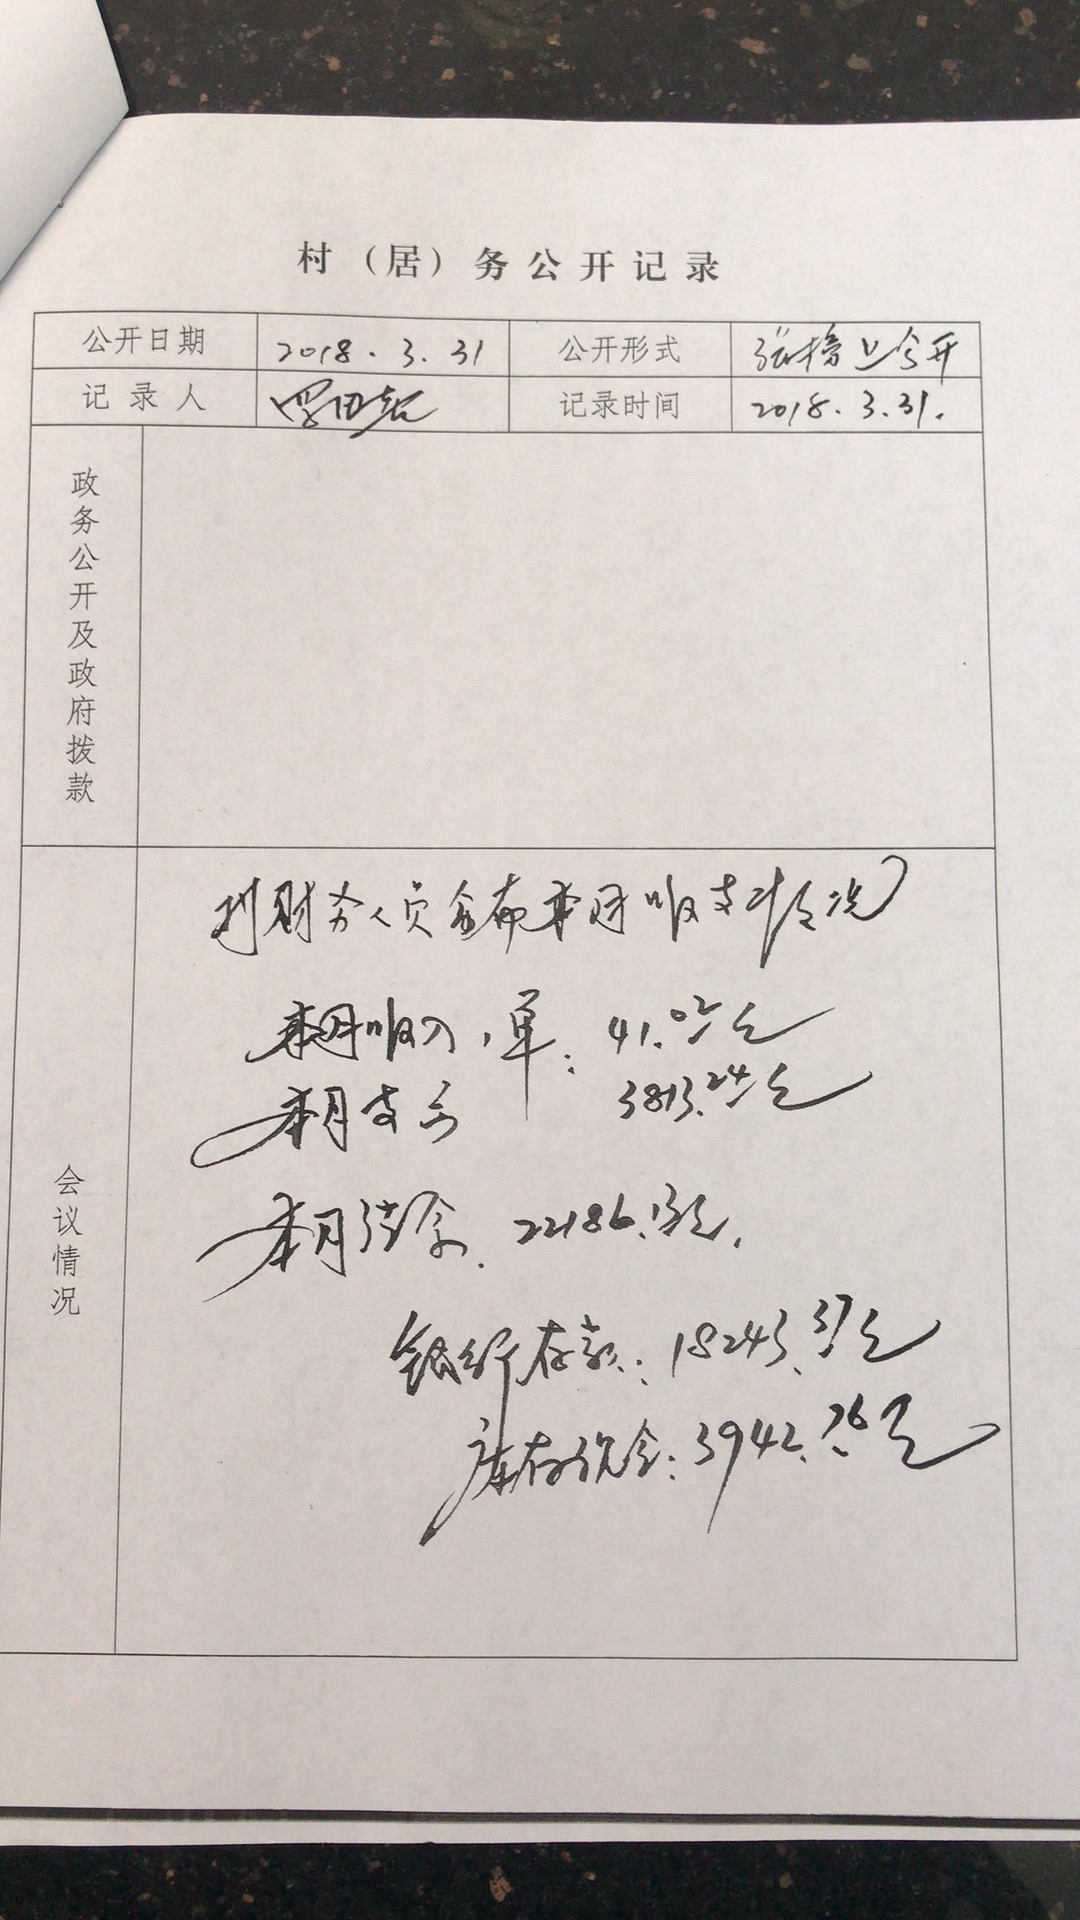 村（居）务公开记录
公开日期 2018.3.31 公开形式 张榜公开
记录人 记录时间 2018.3.31.
政务公开及政府拨款
会议情况
财务人员公布本月收支情况
本月收入 单: 41.02元
本月支 3813.24元
本月结余. 22186.13元.
银行存款: 18243.37元
库存现金: 3942.76元